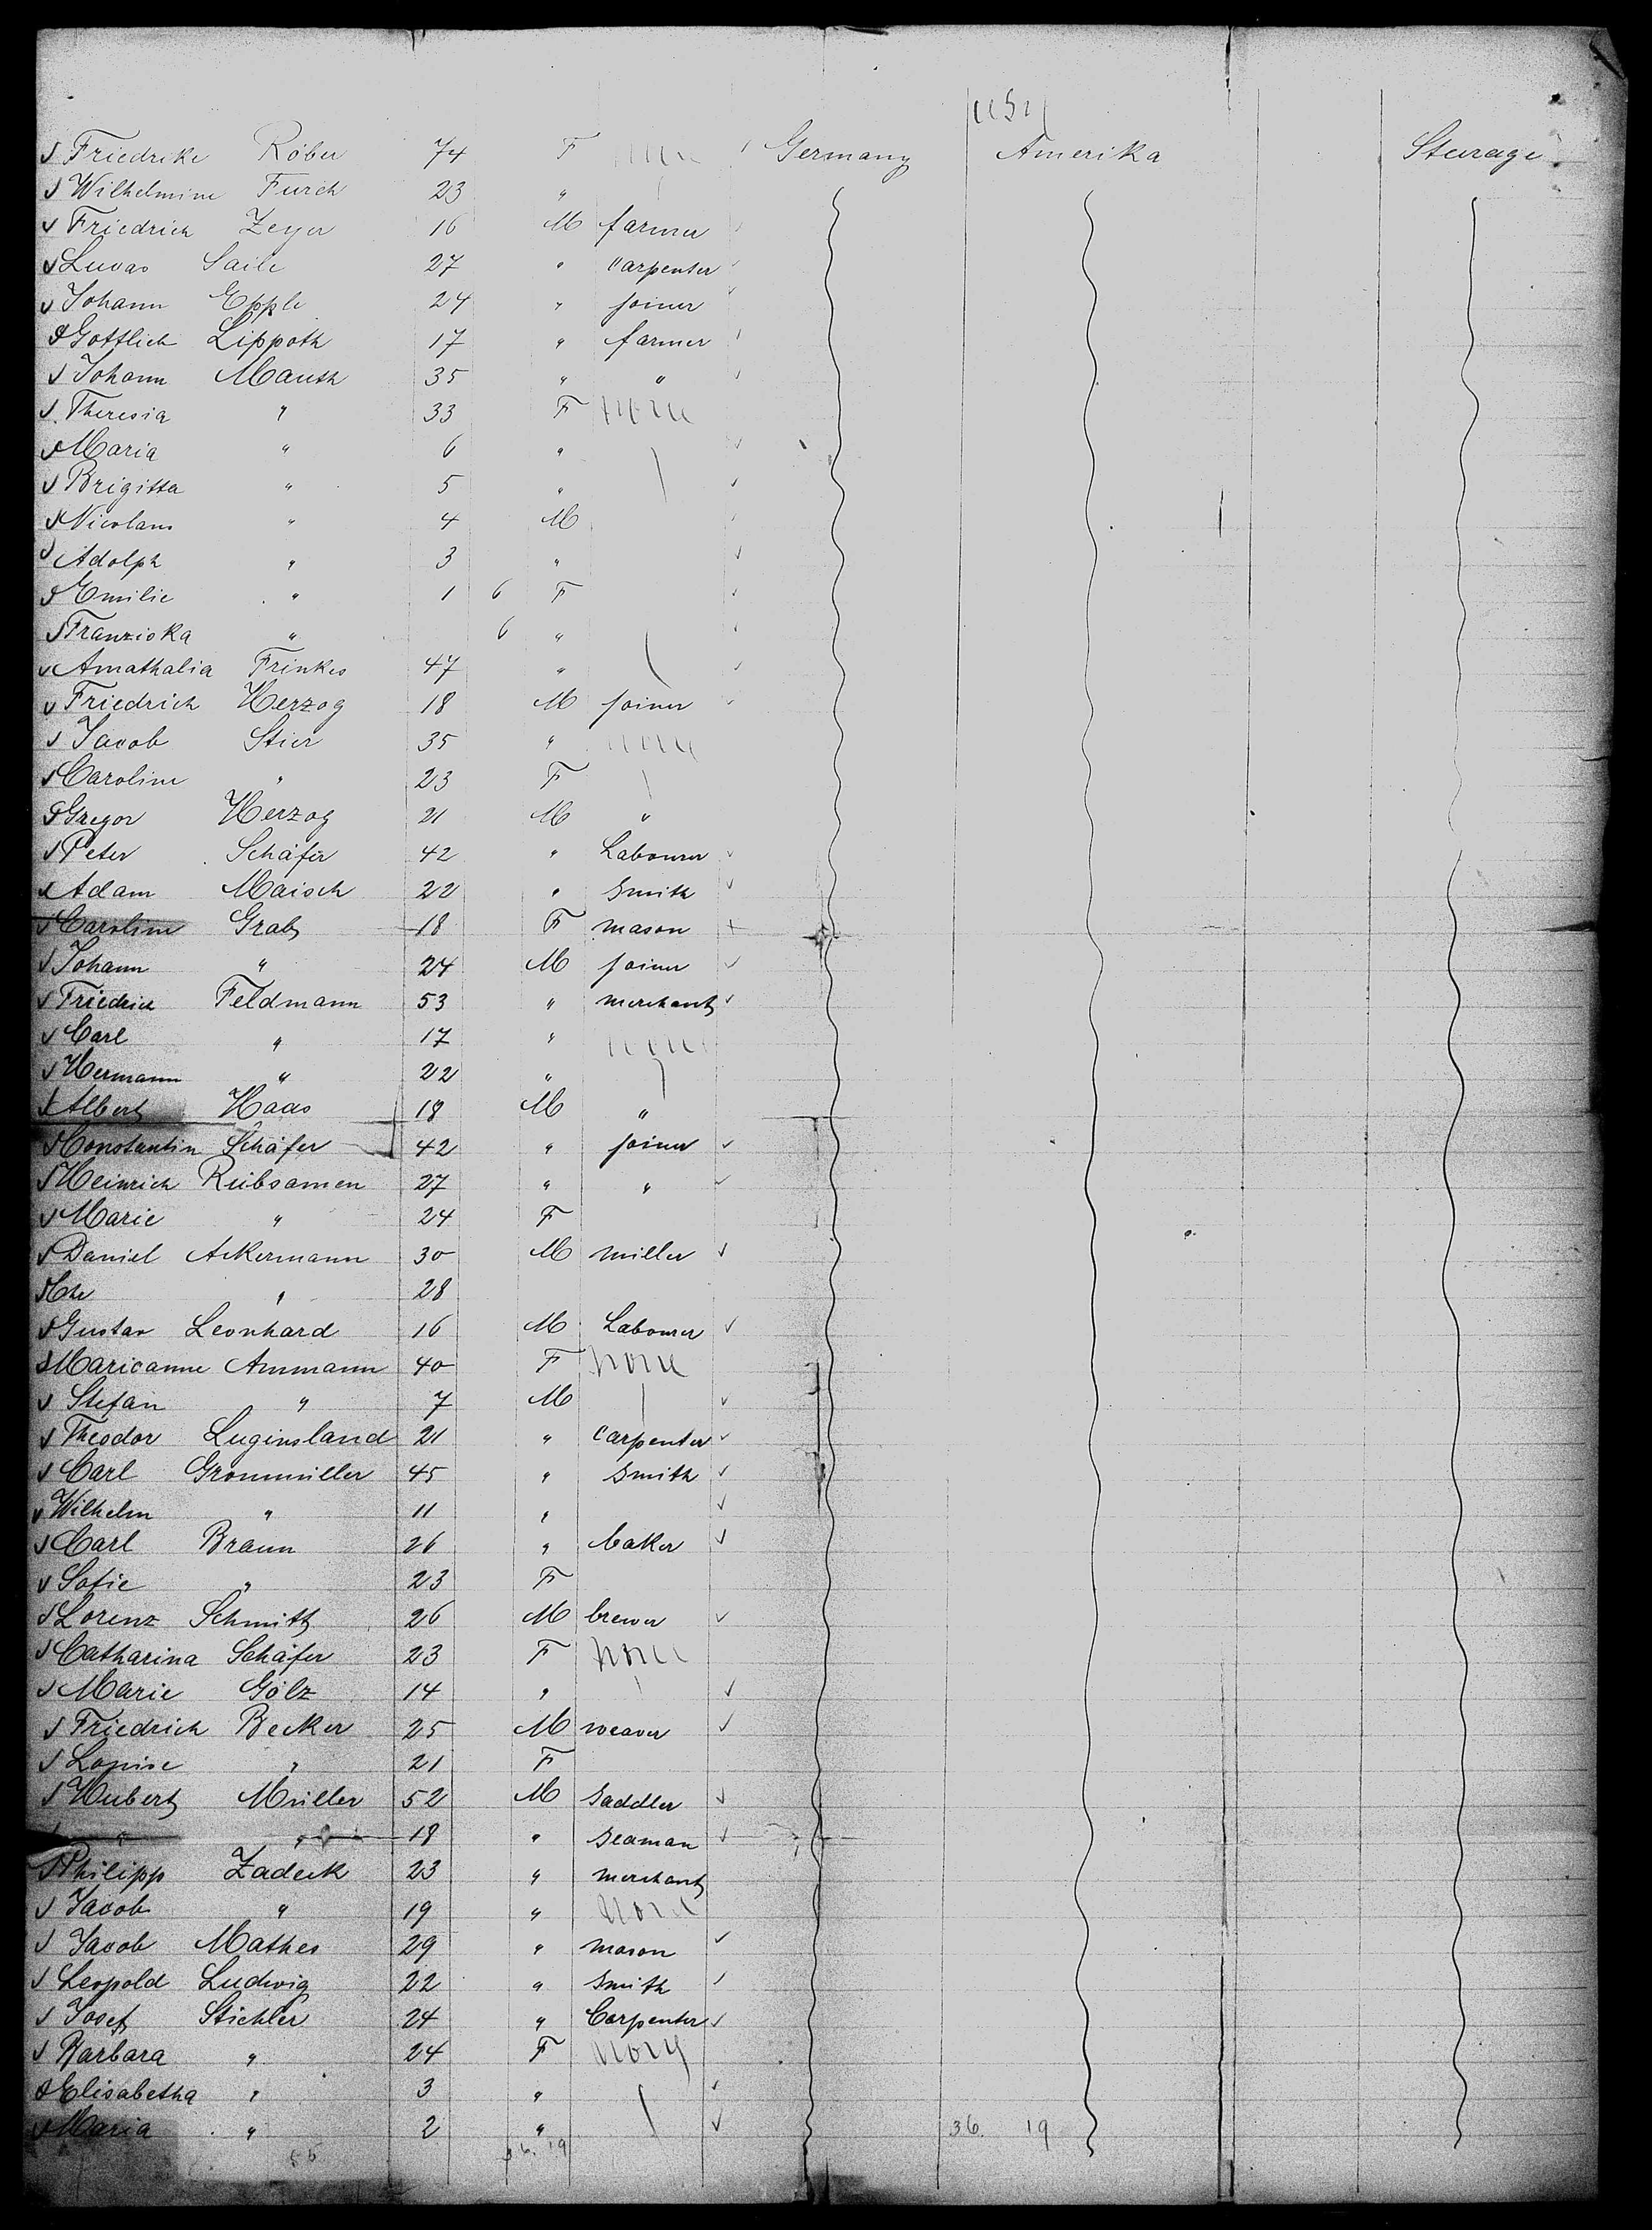 USA
Friedrike Röber 74 F none Germany Amerika Sturage
Wilhelmine Furch 23 "
Friedrich Zeyer 16 M farmer
Lucas Saile 27 " Carpenter
Johann Epple 24 " joiner
Gottlieb Lippoth 17 " farmer
Johann Mauth 35 " "
Theresia " 33 F none
Maria " 6 "
Brigitta " 5 "
Nicolaus " 4 M
Adolph " 3 "
Emilie " 1 6 F
Franziska " 6 "
Amathalia Frinkes 47 "
Friedrich Herzog 18 M joiner
Jacob Stier 35 " none
Caroline " 23 F
Gregor Herzog 21 M "
Peter Schäfer 42 " Labourer
Adam Maisch 22 " Smith
Caroline Grab 18 F mason
Johann " 24 M joiner
Friedrich Feldmann 53 " merchant
Carl " 17 " none
Hermann " 22 "
Albert Haas 18 M "
Constantin Schäfer 42 " joiner
Heinrich Rübsamen 27 " "
Marie " 24 F
Daniel Ackermann 30 M miller
" 28
Gustav Leonhard 16 M Labourer
Marieanne Ammann 40 F none
Stefan " 7 M
Theodor Luginsland 21 " Carpenter
Carl Gronmüller 45 " Smith
Wilhelm " 11 "
Carl Braun 26 " baker
Sofie " 23 F
Lorenz Schmitt 26 M brewer
Catharina Schäfer 23 F none
Marie Gölz 14 "
Friedrich Becker 25 M weaver
Louise " 21 F
Hubert Müller 52 M Saddler
" " 18 " Seaman
Philipp Zadeck 23 " merchant
Jacob " 19 " none
Jacob Mathes 29 " mason
Leopold Ludwig 22 " Smith
Josef Stichler 24 " Carpenter
Barbara " 24 F none
Elisabetha " 3 "
Maria " 2 " 36. 19
55 36. 19